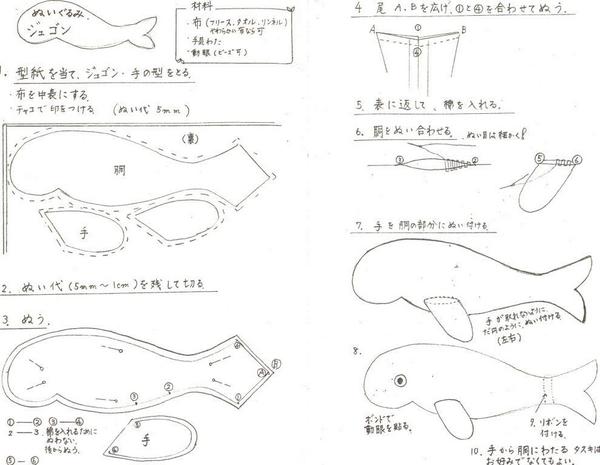 ぬいぐるみ
ジュゴン
材料
・布(フリース、タオル、リンネル)
やわらかい布なら可
・手芸わた
・動眼(ビーズ可)
1. 型紙を当て、ジュゴン・手の型をとる。
・布を中表にする。
・チャコで印をつける。 (ぬい代 5mm)
(裏)
胴
手
2. ぬい代(5mm〜1cm)を残して切る。
3. ぬう。
手
①—② ③—④
2—3. 綿を入れるために
ぬわない。
後からぬう。
⑤—⑥
4 尾 A、Bを広げ、①と④を合わせてぬう。
A
①
④
B
5. 表に返して、綿を入れる。
6. 胴をぬい合わせる。 ぬい目は細かく!
③ ② ⑤ ⑥
7. 手を胴の部分にぬい付ける。
手が取れないように、
だ円のように、ぬい付ける。
(左右)
8.
ボンドで
動眼を貼る。
9. リボンを
付ける。
10. 手から胴にわたる タスキは
お好みでなくてもよい。